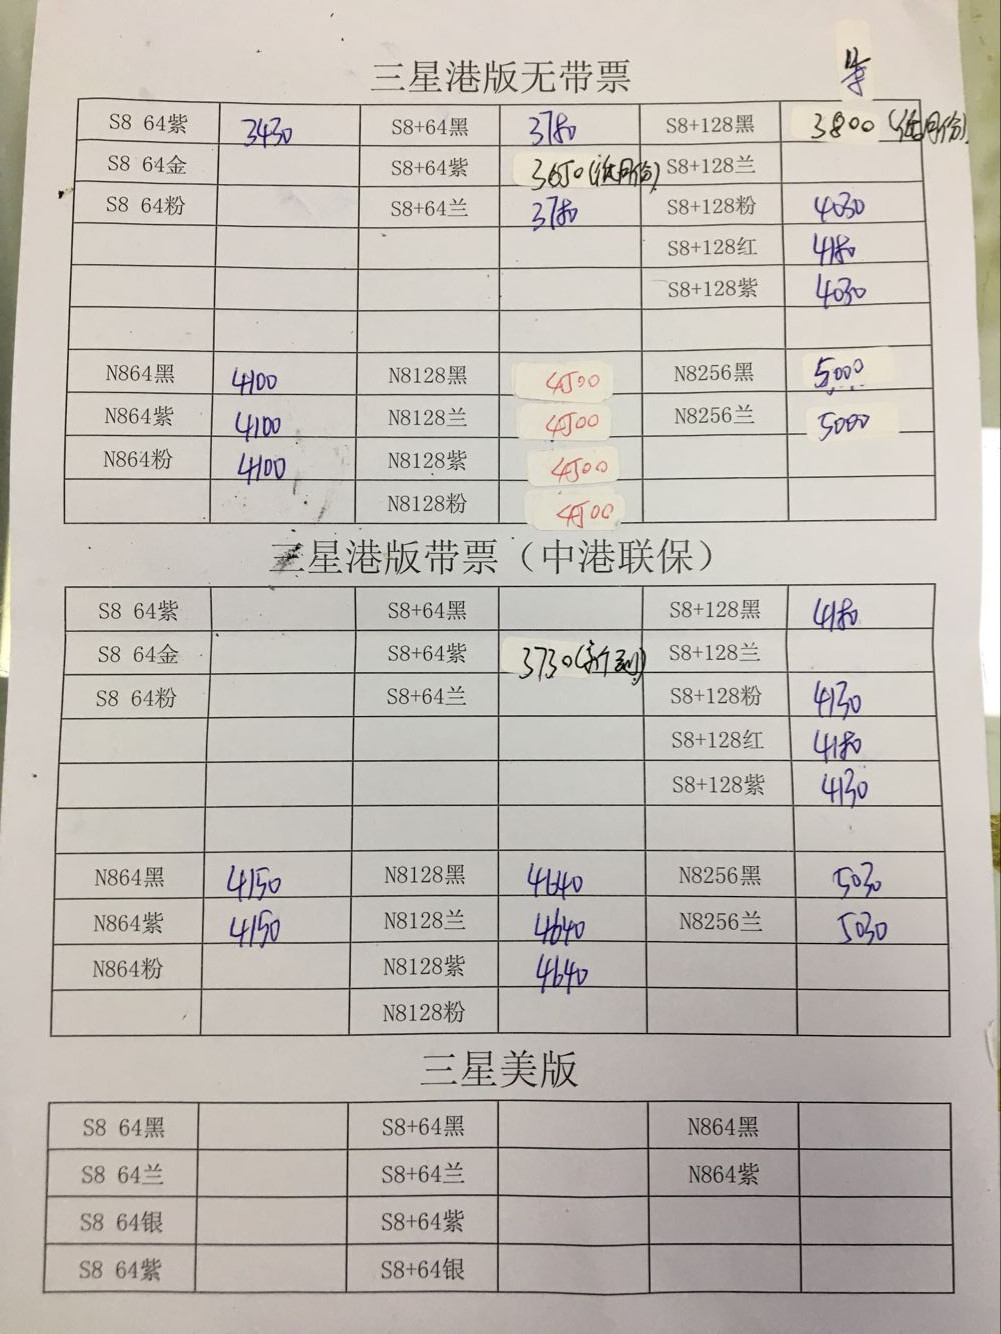 三星港版无带票
S8 64紫 3430 S8+64黑 3780 S8+128黑 3800(低月份)
S8 64金 S8+64紫 3650(低月份) S8+128兰
S8 64粉 S8+64兰 3780 S8+128粉 4030
S8+128红 4180
S8+128紫 4030
N864黑 4100 N8128黑 4500 N8256黑 5000
N864紫 4100 N8128兰 4500 N8256兰 5000
N864粉 4100 N8128紫 4500
N8128粉 4500
三星港版带票（中港联保）
S8 64紫 S8+64黑 S8+128黑 4180
S8 64金 S8+64紫 3730 S8+128兰
S8 64粉 S8+64兰 S8+128粉 4130
S8+128红 4180
S8+128紫 4130
N864黑 4150 N8128黑 4640 N8256黑 5030
N864紫 4150 N8128兰 4640 N8256兰 5030
N864粉 N8128紫 4640
N8128粉
三星美版
S8 64黑 S8+64黑 N864黑
S8 64兰 S8+64兰 N864紫
S8 64银 S8+64紫
S8 64紫 S8+64银